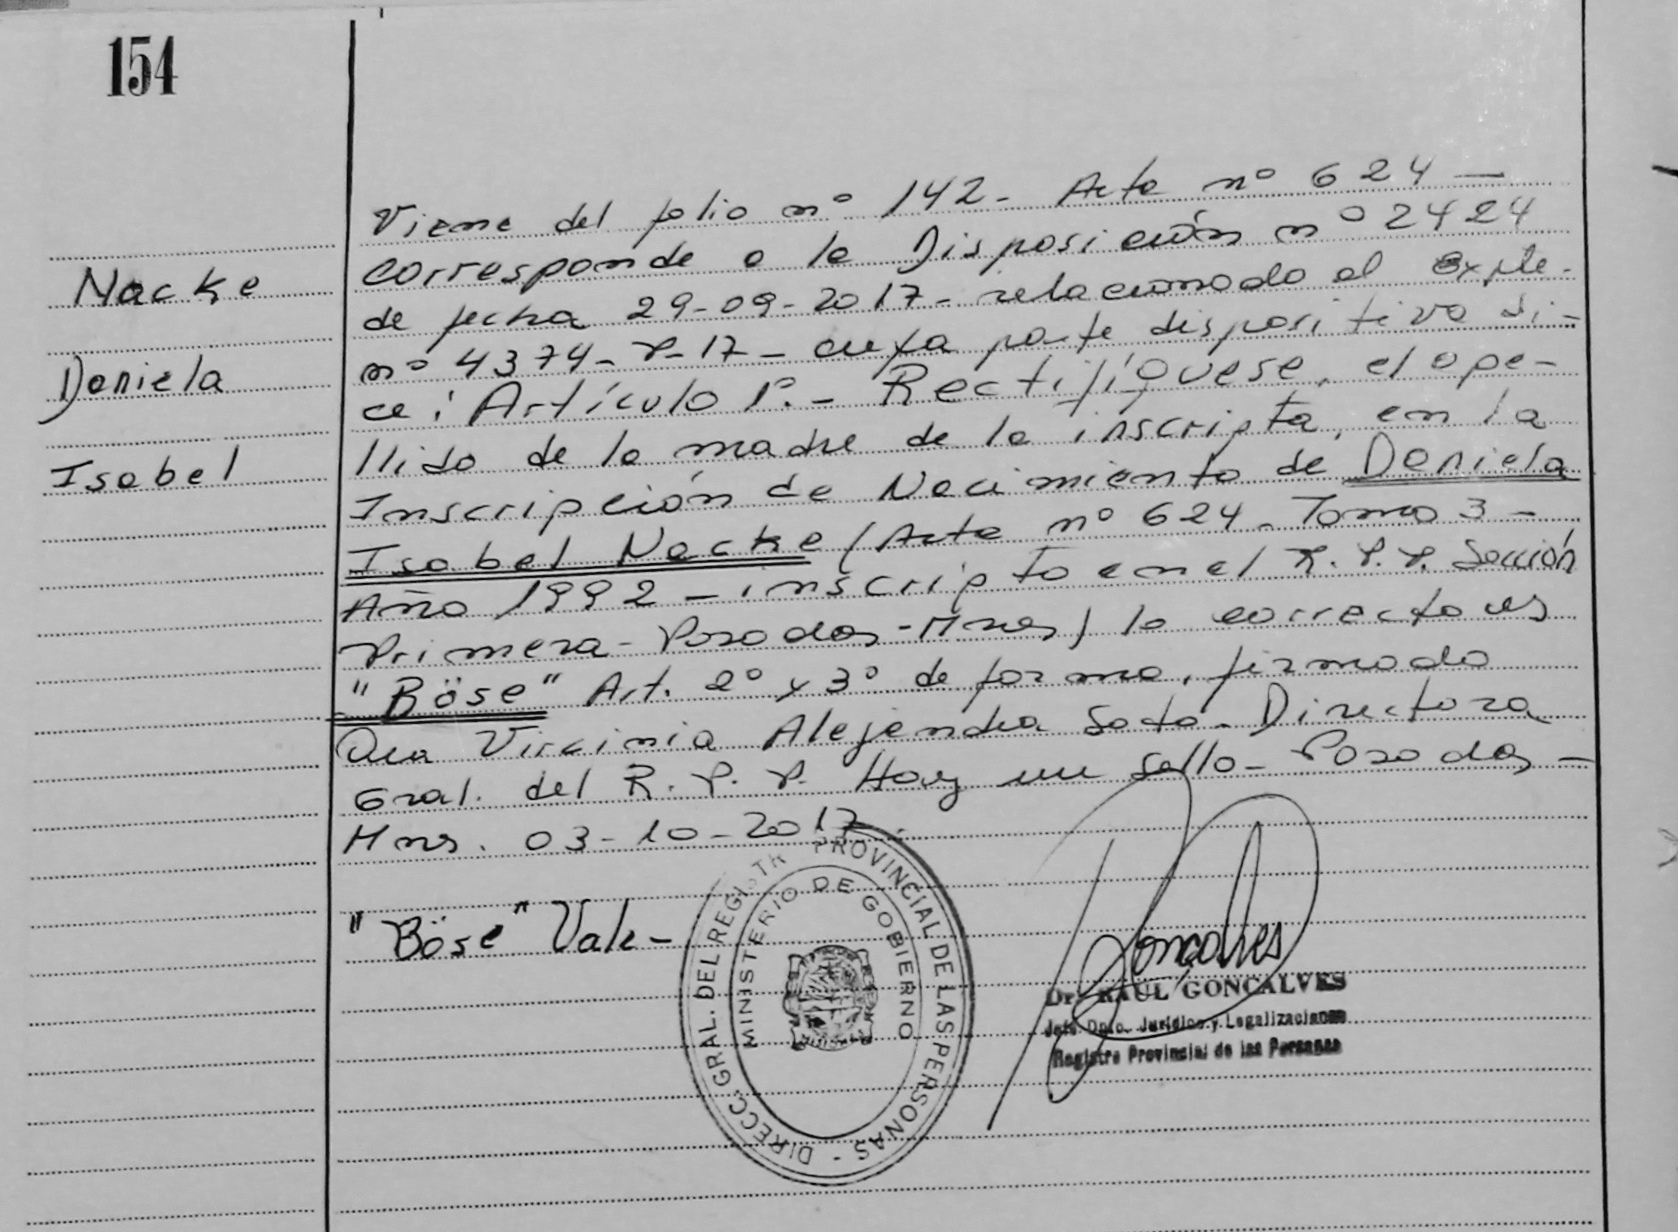 154
Nacke
Daniela
Isabel
Viene del folio nº 142- Acta nº 624 —
corresponde a la Disposición nº 2424
de fecha 29-09-2017- relacionado al Expte.
nº 4374-P-17- cuya parte dispositiva di-
ce: Artículo 1º.- Rectifíquese, el ape-
llido de la madre de la inscripta, en la
Inscripción de Nacimiento de Daniela
Isabel Nacke (Acta nº 624. Tomo 3-
Año 1992 - inscripto en el R.P.P. Sección
Primera- Posadas-Mnes) lo correcto es
"Böse" Art. 2º y 3º de forma, firmado
Dra Virginia Alejandra Soto- Directora
Gral. del R.P.P. Hay un Sello- Posadas-
Mns. 03-10-2017.
"Böse" Vale-
DIRECC. GRAL. DEL REGISTR PROVINCIAL DE LAS PERSONAS -
MINISTERIO DE GOBIERNO
Goncalves
Dr. RAUL GONCALVES
Jefe Dpto. Jurídico y Legalizaciones
Registro Provincial de las Personas